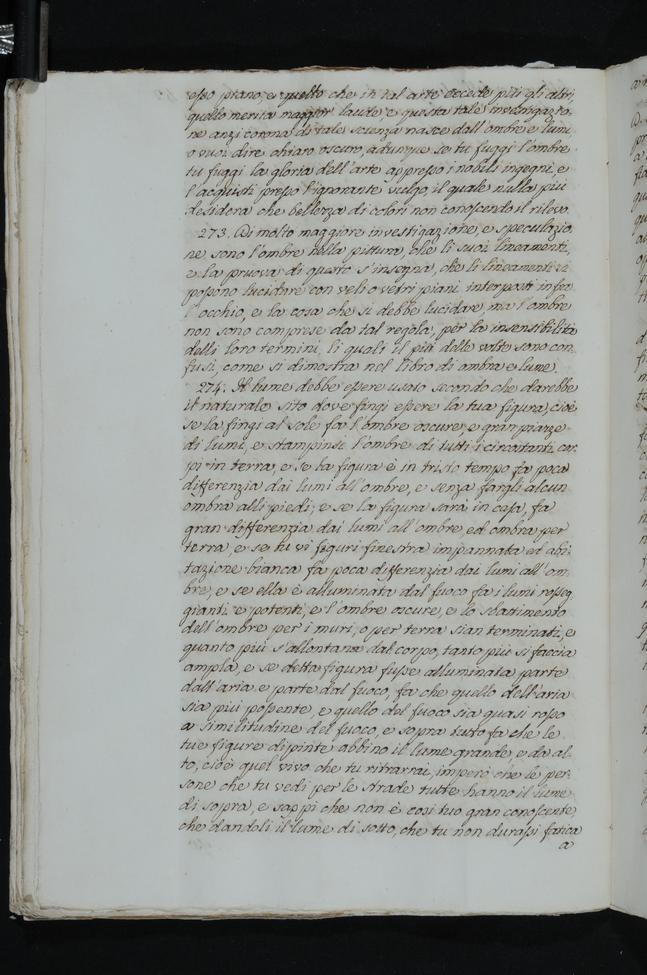 esso piano, e quello che in tal arte eccede più gli altri,
quello merita maggior laude, e questa tale investigazio-
ne anzi corona di tale scienza nasce dall'ombre e lumi
o vuoi dire chiaro oscuro, adunque se tu fuggi l'ombre
tu fuggi la gloria dell'arte appresso i nobili ingegni, e
l'acquisti presso l'ignorante vulgo, il quale nulla più
desidera che bellezza di colori non conoscendo il rilevo.
273. Di molto maggiore investigazione, e speculazio-
ne sono l'ombre nella pittura, che li suoi lineamenti,
e la pruova di questo s'insegna, che li lineamenti si
possono lucidare con veli o vetri piani interposti infra
l'occhio, e la cosa che si debbe lucidare, ma l'ombre
non sono comprese da tal regola, per la insensibilità
delli loro termini, li quali il più delle volte sono con
fusi, come si dimostra nel libro di ombra e lume.
274. Il lume debbe essere usato secondo che darebbe
il naturale sito dove fingi essere la tua figura, cioè
se la fingi al sole fa l'ombre oscure, e gran piazze
di lumi, e stampinsi l'ombre di tutti i circostanti cor-
pi in terra, e se la figura è in tristo tempo fa poca
differenzia dai lumi all'ombre, e senza fargli alcun
ombra alli piedi; e se la figura sarà in casa, fa
gran differenzia dai lumi all'ombre, ed ombra per
terra, e se tu vi figuri finestra impannata ed abi-
tazione bianca fa poca differenzia dai lumi all'om-
bre, e se ella è alluminata dal fuoco fa i lumi rosseg
gianti e potenti, e l'ombre oscure, e lo sbattimento
dell'ombre per i muri, o per terra sian terminati, e
quanto più s'allontana dal corpo, tanto più si faccia
ampla, e se detta figura fusse alluminata parte
dall'aria e parte dal fuoco, fa che quello dell'aria
sia più possente, e quello del fuoco sia quasi rosso
a similitudine del fuoco, e sopra tutto fa che le
tue figure dipinte abbino il lume grande, e da al-
to, cioè quel vivo che tu ritrarrai, imperò che le per-
sone che tu vedi per le strade tutte hanno il lume
di sopra, e sappi che non è così tuo gran conoscente,
che dandoli il lume di sotto, che tu non durassi fatica
a